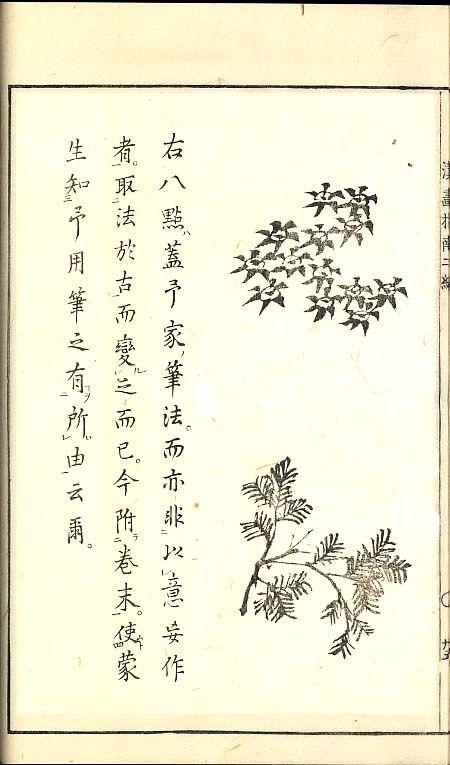 漢畫指南二編
右八點蓋予家筆法。而亦非以意妄作
者。取法於古而變之而已。今附卷末。使蒙
生知予用筆之有所由云爾。